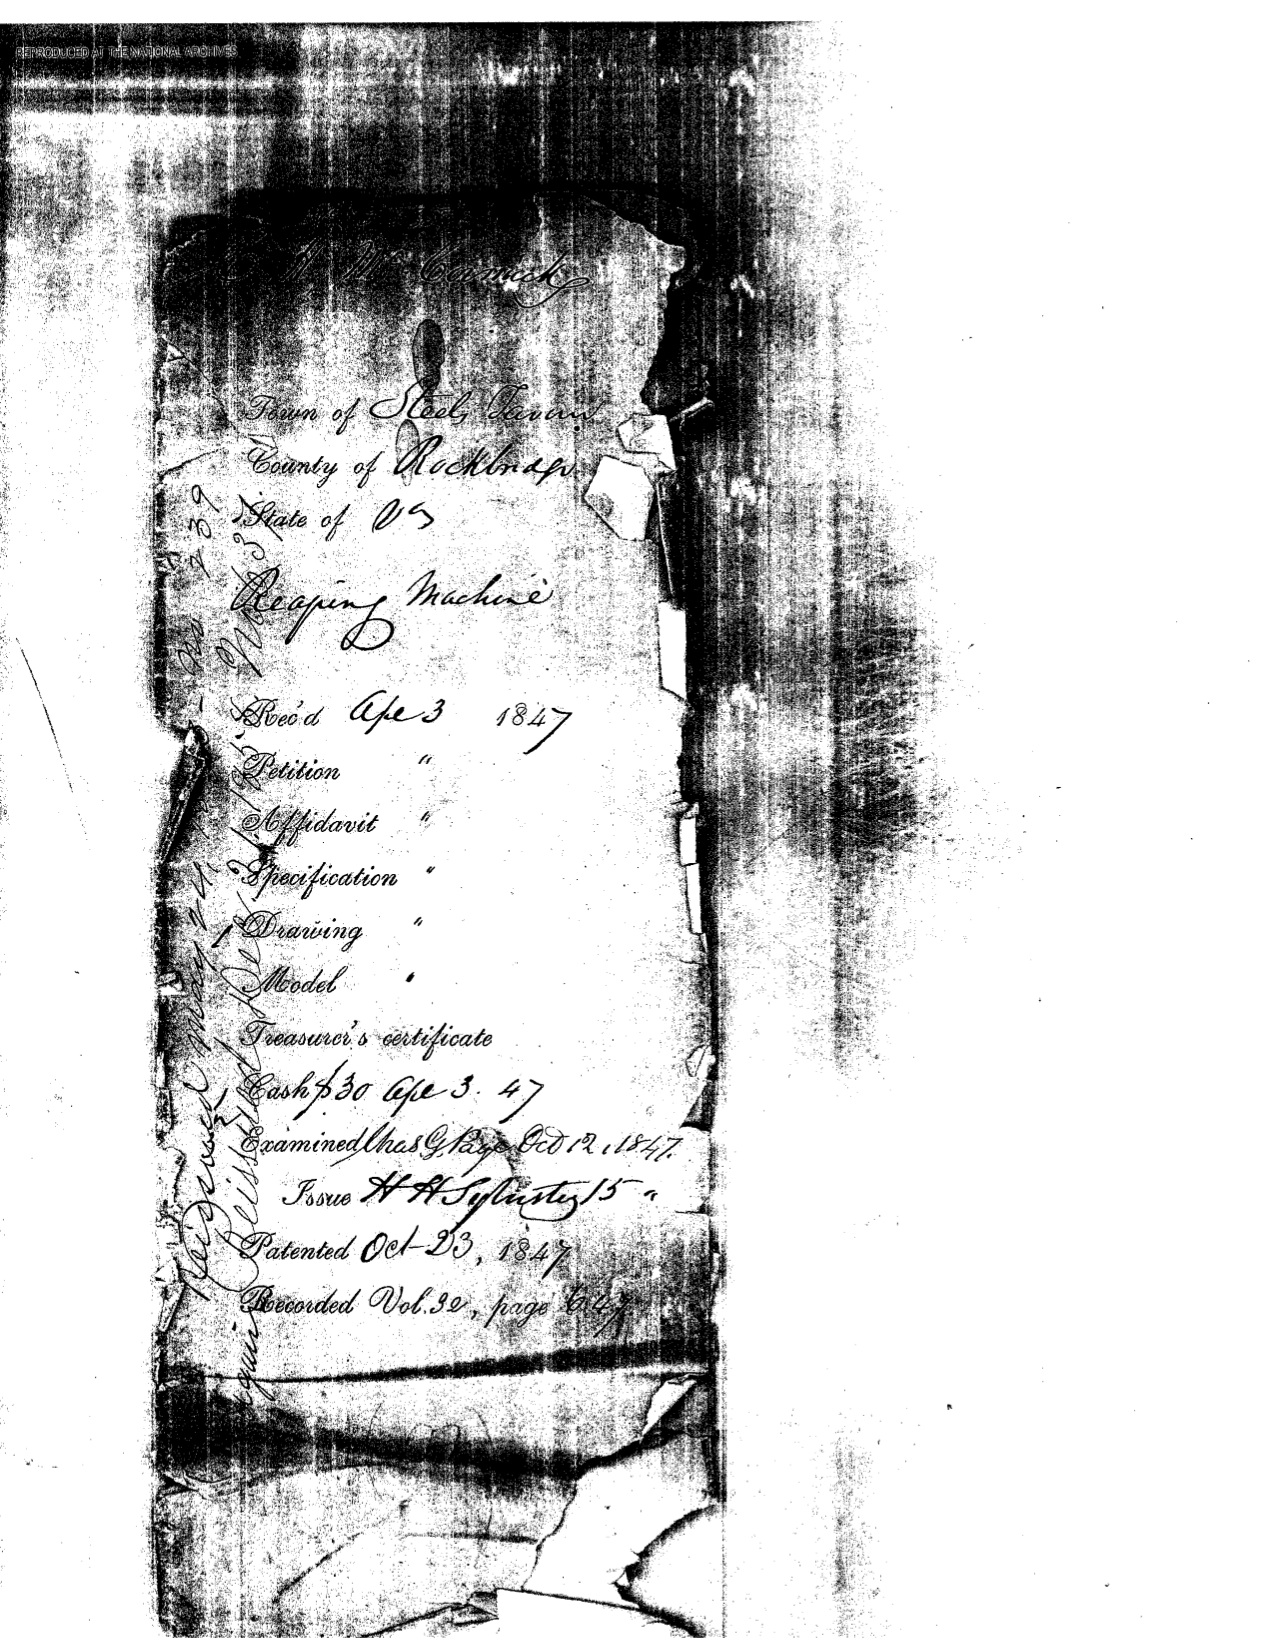 REPRODUCED AT THE NATIONAL ARCHIVES
C H McCormick
Town of Steels Tavern
County of Rockbridge
State of Va
Reaping Machine
Rec'd Ape 3 1847
Petition "
Affidavit "
Specification "
Drawing "
Model "
Treasurer's certificate
Cash $30 Ape 3. 47
Examined Chas G. Page Oct 12, 1847.
Issue H H Sylvester 15 "
Patented Oct 23, 1847
Recorded Vol. 32, page 647
Reissued May 24 No 239
again Reissued Dec